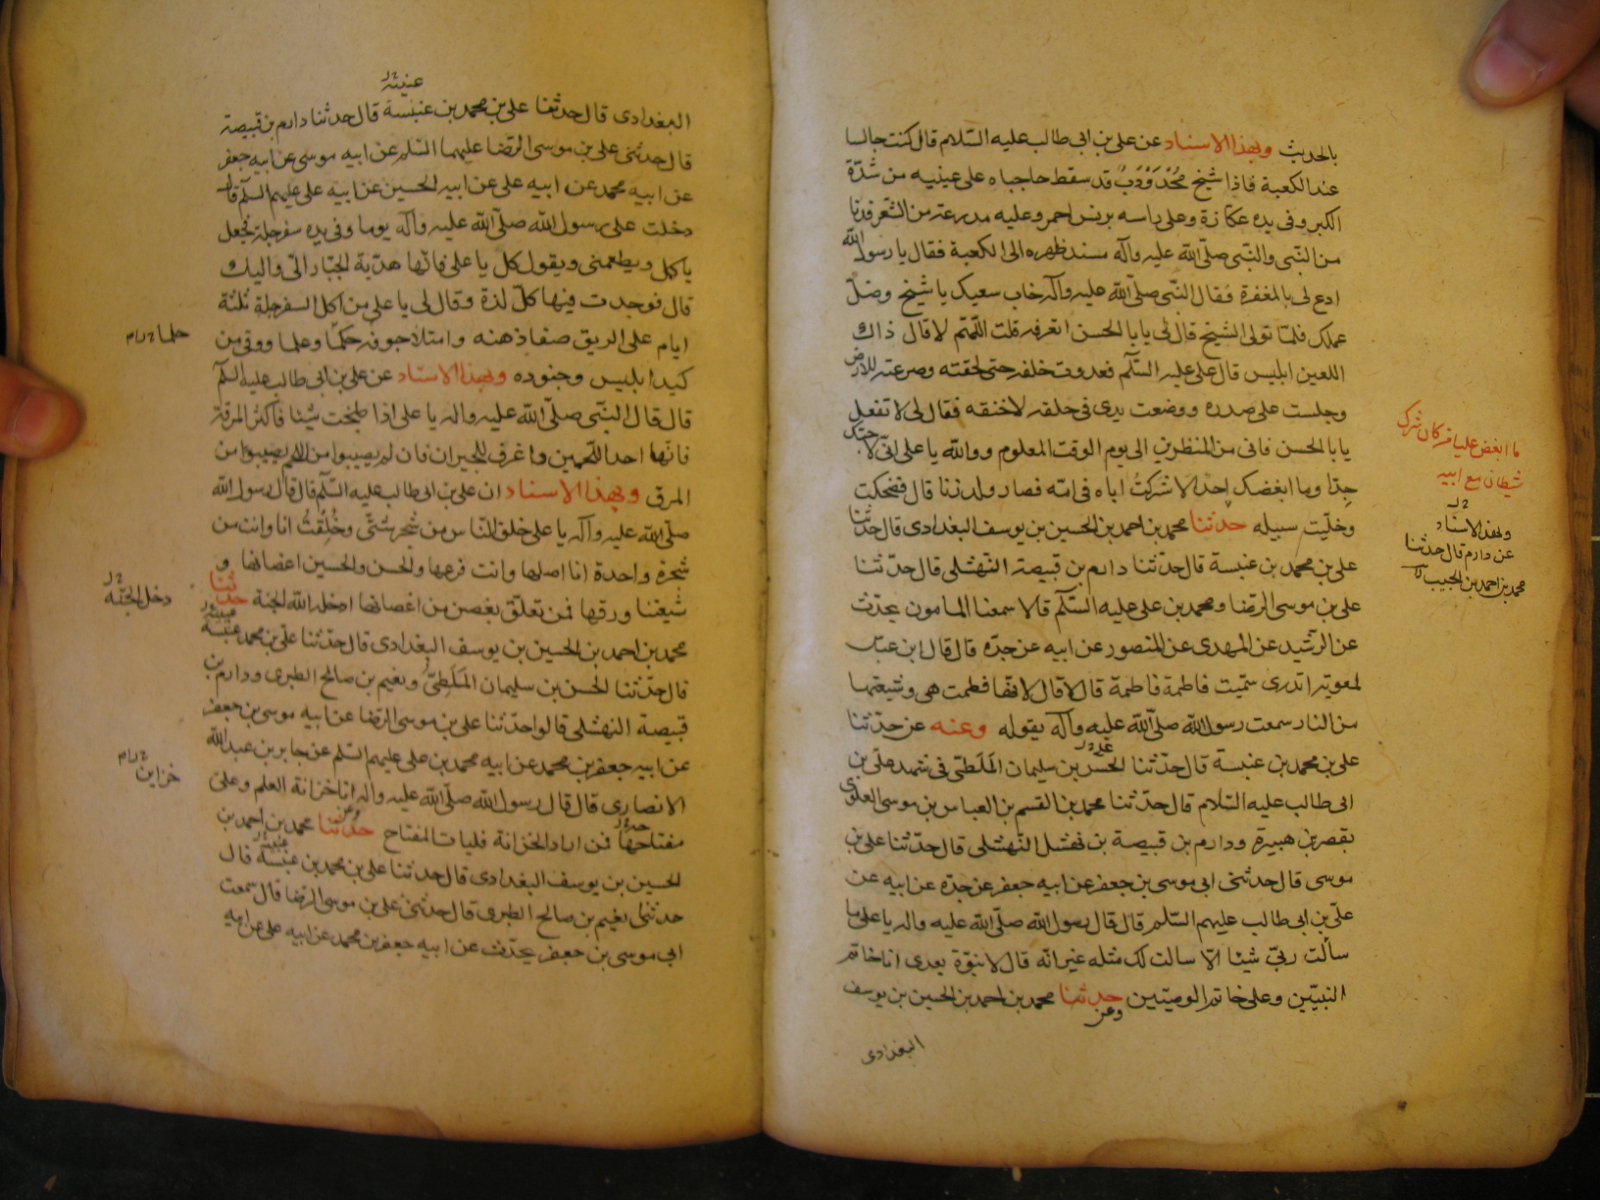 بالحديث وبهذا الاسناد عن علي بن ابي طالب عليه السّلام قال كنت جالسا
عند الكعبة فاذا شيخ مُحْدَوْدَبٌ قد سقط حاجباه على عينيه من شدّة
الكبر وفي يده عكّازة وعلى راسه برنس احمر وعليه مدرعة من الشعر فدنا
من النّبي والنّبي صلّى الله عليه وآله مسند ظهره الى الكعبة فقال يا رسول الله
ادع لي بالمغفرة فقال النّبي صلّى الله عليه وآله خاب سعيك يا شيخ وضلّ
عملك فلمّا تولى الشيخ قال لي يابا الحسن اتعرفه قلت اللّهمّ لا قال ذاك
اللعين ابليس قال علي عليه السّلم فعدوت خلفه حتى لحقته وصرعته للارض
وجلست على صدره ووضعت يدي في حلقه لاخنقه فقال لي لا تفعل
يابا الحسن فاني من المنظرين الى يوم الوقت المعلوم ووالله يا علي انّي لاحبّك
جدّا وما ابغضك احد الا شركتُ اباه في امّه فصار ولد زنا قال فضحكت
وخلّيت سبيله حدثنا محمد بن احمد بن الحسين بن يوسف البغدادي قال حدّثنا
علي بن محمد بن عنبسة قال حدّثنا دارم بن قبيصة النّهشلي قال حدّثنا
علي بن موسى الرضا ومحمد بن علي عليه السّلم قالا سمعنا المامون يحدّث
عن الرّشيد عن المهدي عن المنصور عن ابيه عن جدّه قال قال ابن عبّاس
لمعوية اتدري سمّيت فاطمة فاطمة قال لا قال لانّها فطمت هي وشيعتها
من النار سمعت رسول الله صلّى الله عليه وآله يقوله وعنه عن حدّثنا
علي بن محمد بن عنبسة قال حدّثنا الحسن بن سليمان المَلَطيّ في مشهد علي بن
ابي طالب عليه السّلام قال حدّثنا محمد بن القسم بن العباس بن موسى العلوي
بقصر بن هبيرة ودارم بن قبيصة بن نهشل النّهشلي قال حدّثنا علي بن
موسى قال حدثني ابي موسى بن جعفر عن ابيه جعفر عن جدّه عن ابيه عن
علي بن ابي طالب عليهم السّلم قال قال رسول الله صلّى الله عليه واله يا علي ما
سالت ربّي شيئا الّا سالت لك مثله غير انّه قال لا نبوّة بعدي انا خاتم
النبيّين وعلي خاتم الوصيّين حدثنا محمد بن احمد بن الحسين بن يوسف
وعن
البغدادي
ما ابغض عليا فر كان شرك
شيطان مع ابيه
وبهذا الاسناد
عن دارم قال حدثنا
محمد بن احمد بن
عنبثه
البغدادي قال حدثنا علي بن محمد بن عنبسة قال حدثنا دارم بن قبيصة
قال حدثني علي بن موسى الرّضا عليهما السّلم عن ابيه موسى عن ابيه جعفر
عن ابيه محمد عن ابيه علي عن ابيه الحسين عن ابيه علي عليهم السّلم قال
دخلت على رسول الله صلّى الله عليه وآله يوما وفي يده سفرجلة فجعل
ياكل ويطعمني ويقول كل يا علي فانّها هديّة الجبّار اليّ واليك
قال فوجدت فيها كلّ لذة وقال لي يا علي من اكل السفرجلة ثلثة
ايام على الريق صفا ذهنه وامتلا جوفه حكما وعلما ووقي من
كيد ابليس وجنوده وبهذا الاسناد عن علي بن ابي طالب عليه السّلم
قال قال النّبي صلّى الله عليه واله يا علي اذا طبخت شيئا فاكثر المرقة
فانّها احد اللحمين واغرف للجيران فان لم يصيبوا من اللحم يصيبوا من
المرق وبهذا الاسناد ان علي بن ابي طالب عليه السّلم قال قال رسول الله
صلّى الله عليه وآله يا علي خلق النّاس من شجر شتّى وخُلِقْتُ انا وانت من
شجرة واحدة انا اصلها وانت فرعها والحسن والحسين اغصانها و
شيعتنا ورقها فمن تعلّق بغصن من اغصانها ادخله الله الجنة حدثنا
محمد بن احمد بن الحسين بن يوسف البغدادي قال حدّثنا علي بن محمد عنبسة
قال حدّثنا الحسن بن سليمان المَلَطيّ ونعيم بن صالح الطبري ودارم بن
قبيصة النهشلي قالوا حدّثنا علي بن موسى الرّضا عن ابيه موسى بن جعفر
عن ابيه جعفر بن محمد عن ابيه محمد بن علي عليهم السّلم عن جابر بن عبد الله
الانصاري قال قال رسول الله صلّى الله عليه واله انا خزانة العلم وعليّ
مفتاحها فمن اراد الخزانة فليات المفتاح حدثنا محمد بن احمد بن
الحسين بن يوسف البغدادي قال حدثنا علي بن محمد بن عنبسة قال
حدثنا نعيم بن صالح الطبري قال حدثني علي بن موسى الرّضا قال سمعت
ابي موسى بن جعفر يحدّث عن ابيه جعفر بن محمد عن ابيه علي عن ابيه
حلما
دخل الجنّة
خزاين